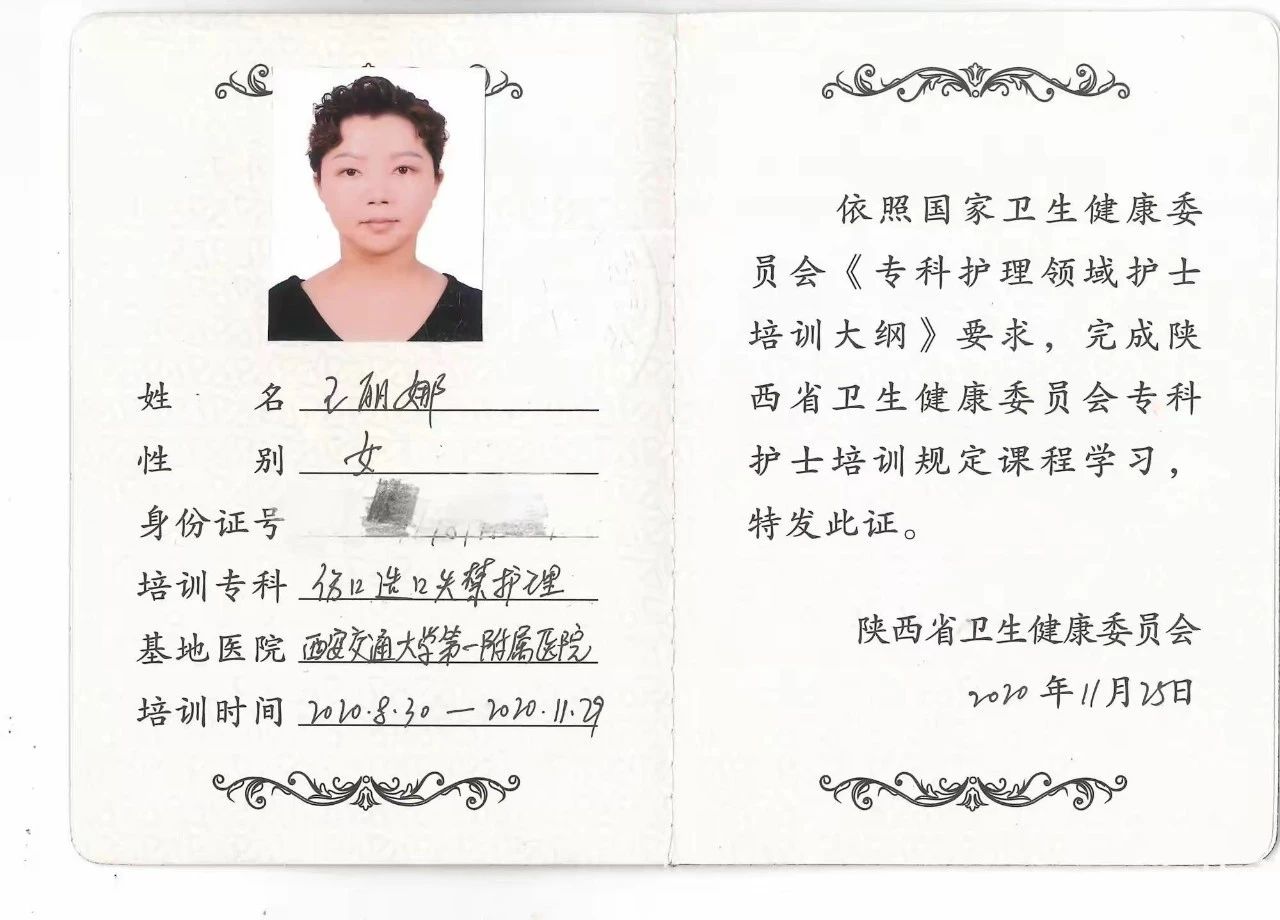 姓名 王丽娜
性别 女
身份证号
培训专科 伤口造口失禁护理
基地医院 西安交通大学第一附属医院
培训时间 2020.8.30—2020.11.29
依照国家卫生健康委
员会《专科护理领域护士
培训大纲》要求，完成陕
西省卫生健康委员会专科
护士培训规定课程学习，
特发此证。
陕西省卫生健康委员会
2020年11月25日